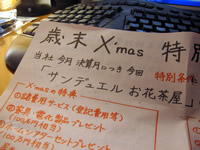 歳末 X'mas 特別
当社 今月 決算月につき 今回
特別条件
「サンデュエル お花茶屋」
X'masの特典
①諸費用サービス(登記費用等)
②家具・電化製品プレゼント
(100万円相当)